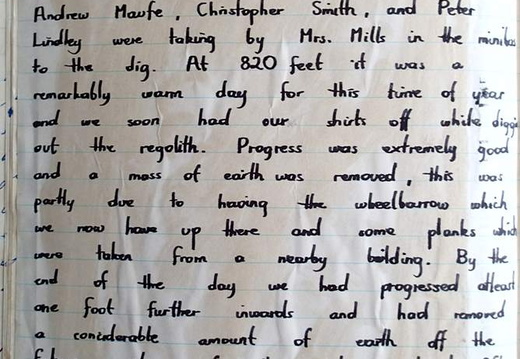 Andrew Maufe, Christopher Smith, and Peter
Lindley were taking by Mrs. Mills in the minibus
to the dig. At 820 feet it was a
remarkably warm day for this time of year
and we soon had our shirts off while digging
out the regolith. Progress was extremely good
and a mass of earth was removed, this was
partly due to having the wheelbarrow which
we now have up there and some planks which
were taken from a nearby building. By the
end of the day we had progressed atleast
one foot further inwards and had removed
a considerable amount of earth off the